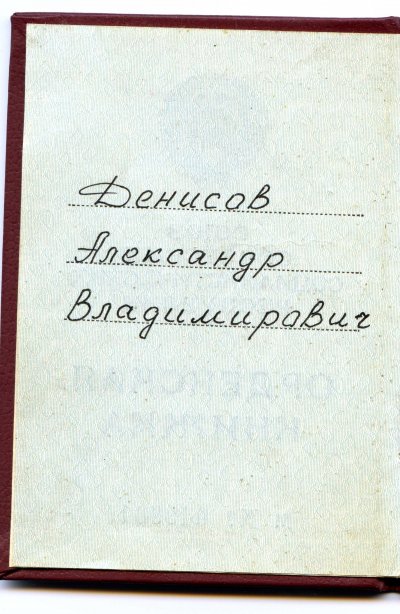 Денисов
Александр
Владимирович